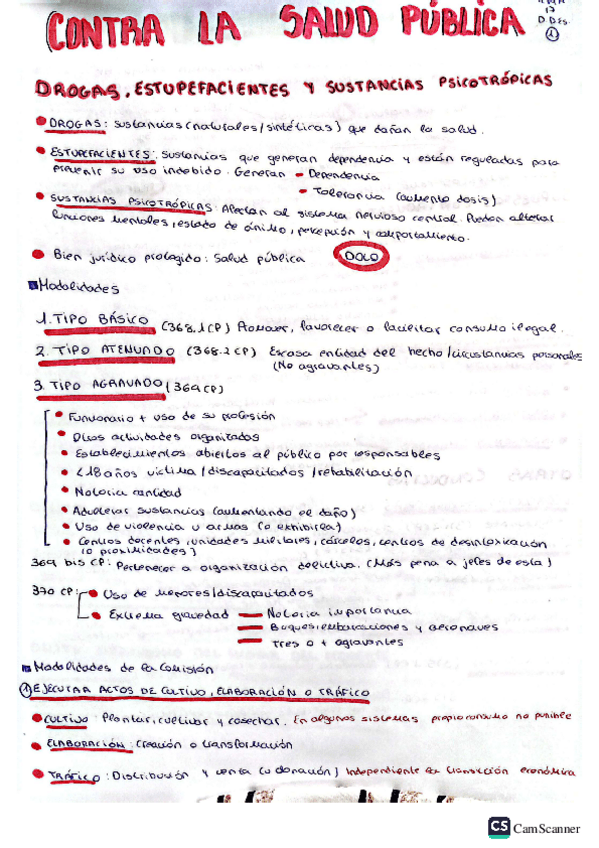 CONTRA LA SALUD PÚBLICA
17
D.Des.
1
DROGAS, ESTUPEFACIENTES Y SUSTANCIAS PSICOTRÓPICAS
DROGAS: sustancias (naturales/sintéticas) que dañan la salud.
ESTUPEFACIENTES: sustancias que generan dependencia y están reguladas para
prevenir su uso indebido. Generan - Dependencia
- Tolerancia (aumento dosis)
SUSTANCIAS PSICOTRÓPICAS: Afectan al sistema nervioso central. Pueden alterar
funciones mentales, estado de ánimo, percepción y comportamiento.
Bien jurídico protegido: Salud pública DOLO
Modalidades
1. TIPO BÁSICO (368.1 CP) Promover, favorecer o facilitar consumo ilegal.
2. TIPO ATENUADO (368.2 CP) Escasa entidad del hecho/circustancias personales
(No agravantes)
3. TIPO AGRAVADO (369 CP)
Funcionario + uso de su profesión
Otras actividades organizadas
Establecimientos abiertos al público por responsables
<18 años víctima/discapacitados/rehabilitación
Notoria cantidad
Adulterar sustancias (aumentando el daño)
Uso de violencia u armas (o exhibirla)
Centros docentes, unidades militares, cárceles, centros de desintoxicación
(o proximidades)
369 bis CP: Pertenecer a organización delictiva. (Más pena a jefes de esta)
370 CP: Uso de menores/discapacitados
Extrema gravedad — Notoria importancia
— Buques, embarcaciones y aeronaves
— Tres o + agravantes
Modalidades de la Comisión
1 EJECUTAR ACTOS DE CULTIVO, ELABORACIÓN O TRÁFICO
CULTIVO: Plantar, cultivar y cosechar. En algunos sistemas propio consumo no punible
ELABORACIÓN: Creación o transformación
TRÁFICO: Distribución y venta (o donación) Independiente la transacción económica
CS CamScanner